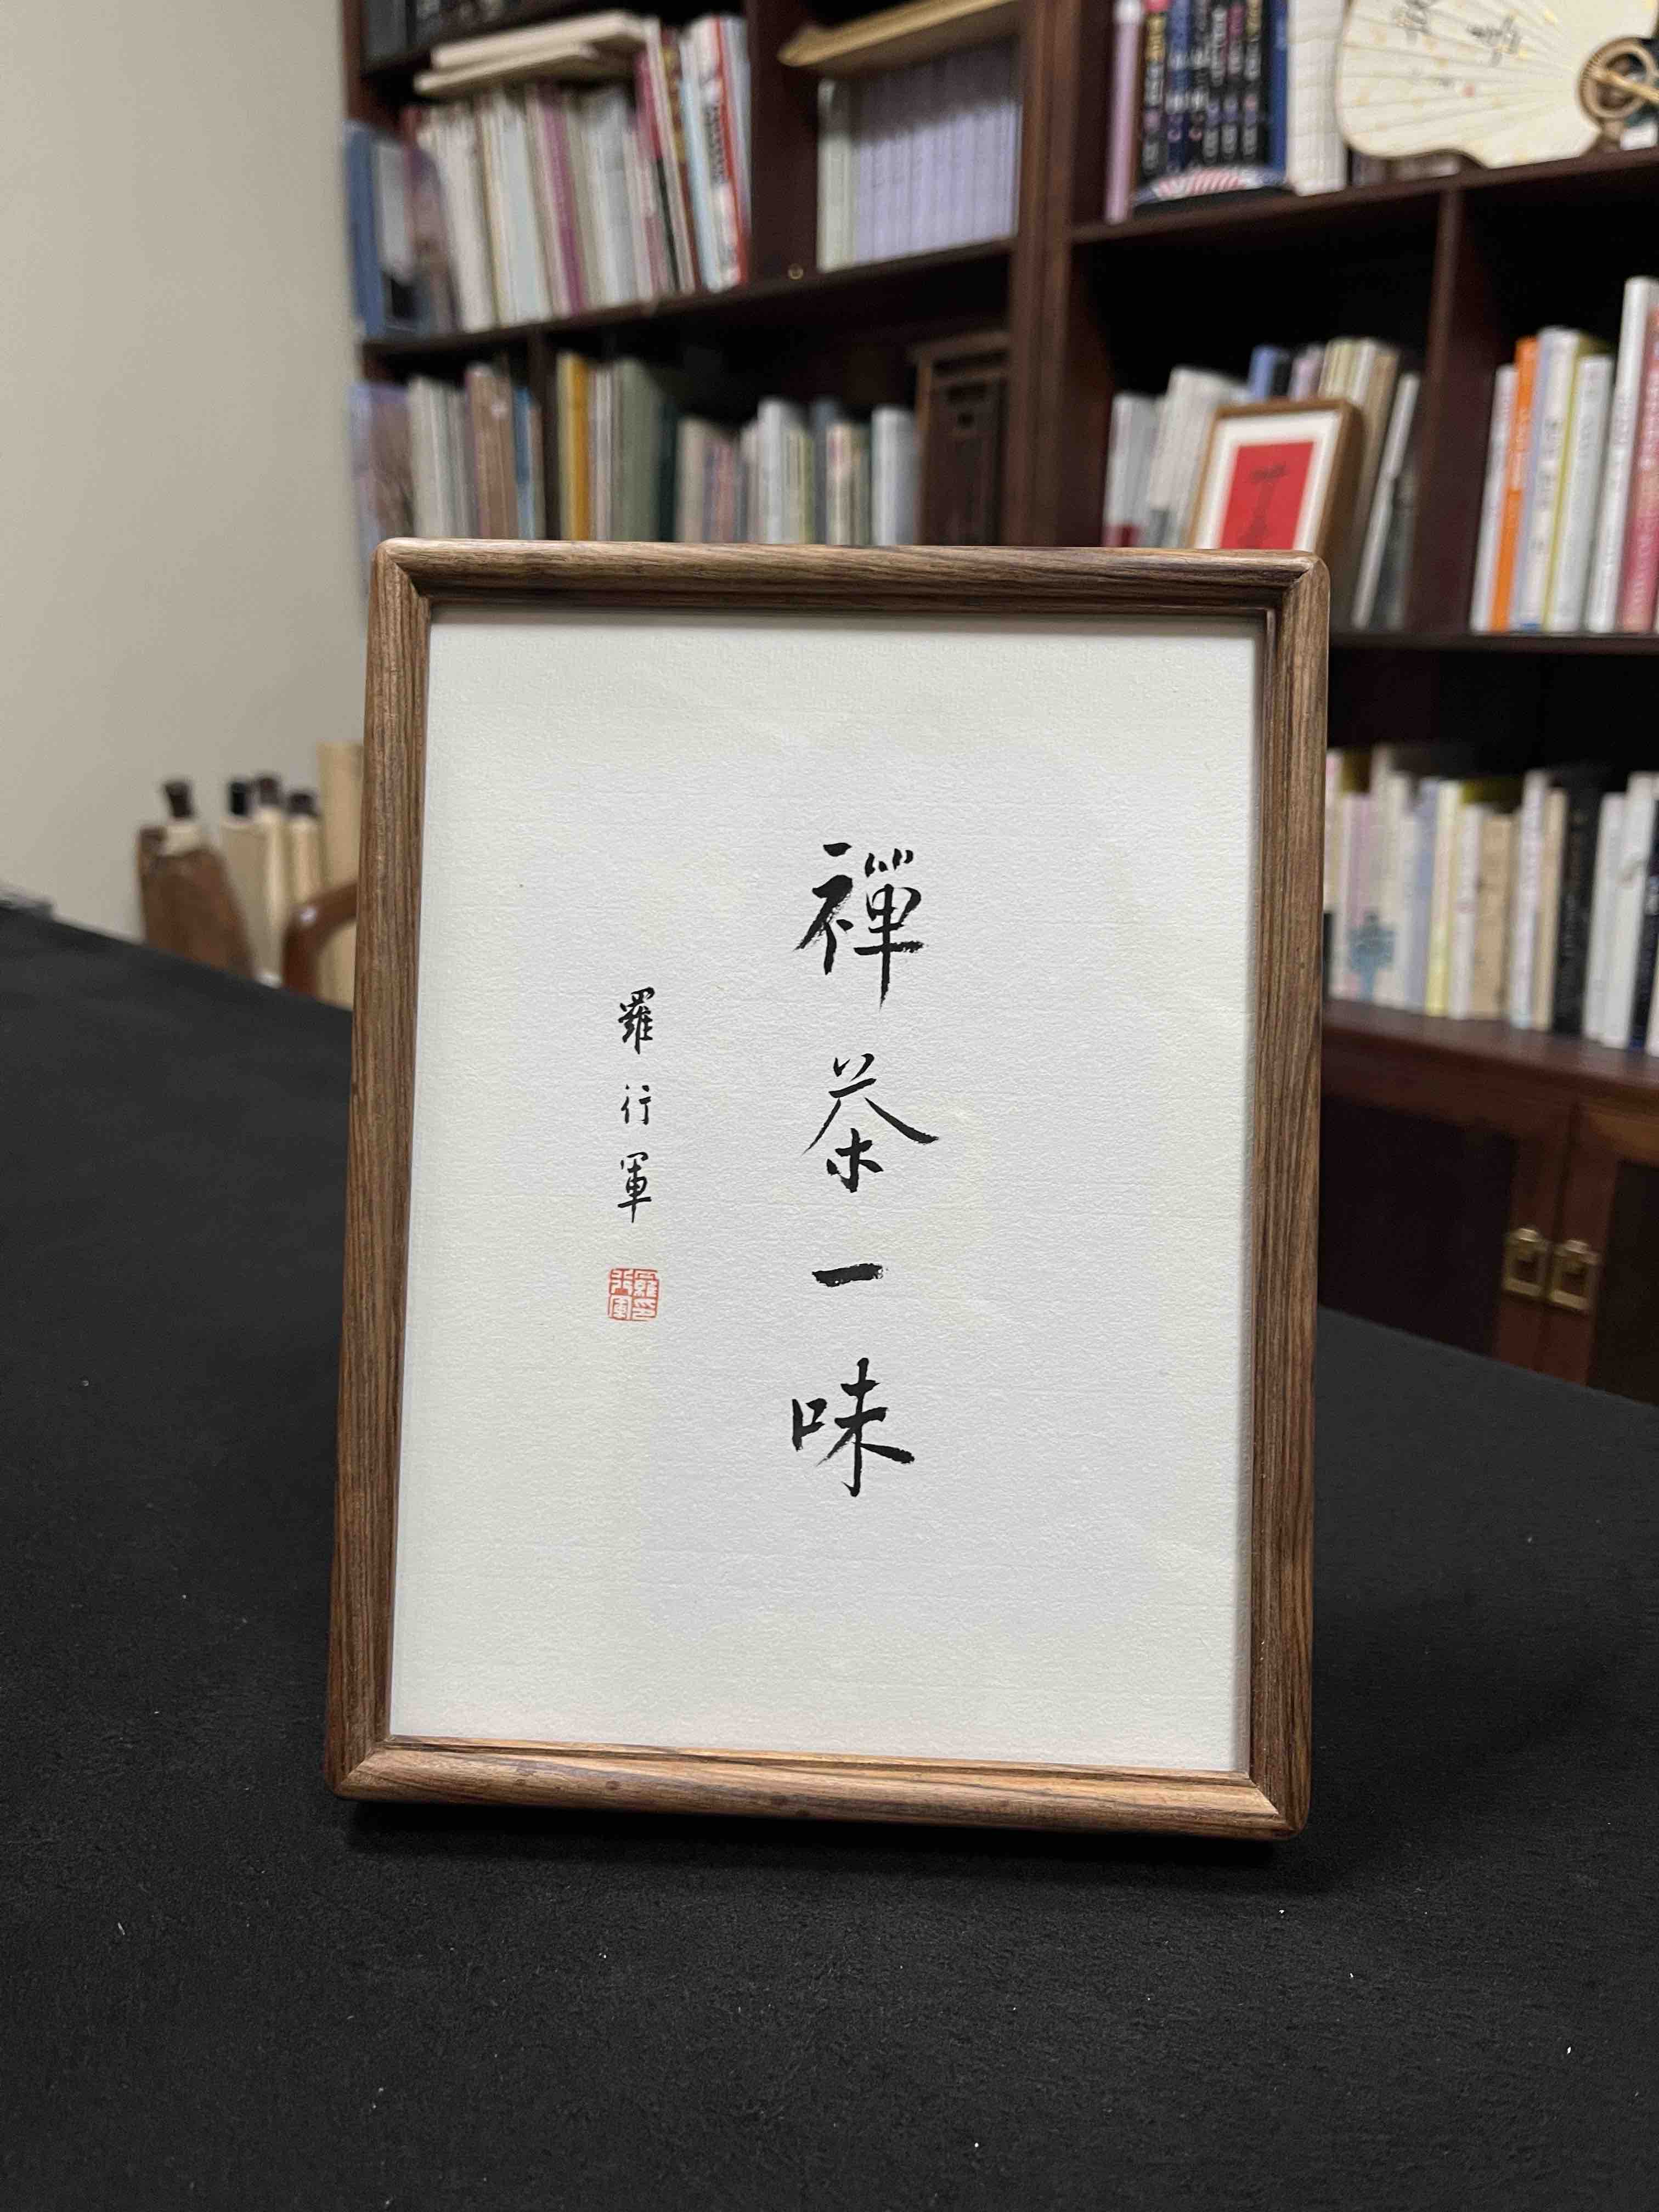 禪茶一味
羅行軍
羅行軍印